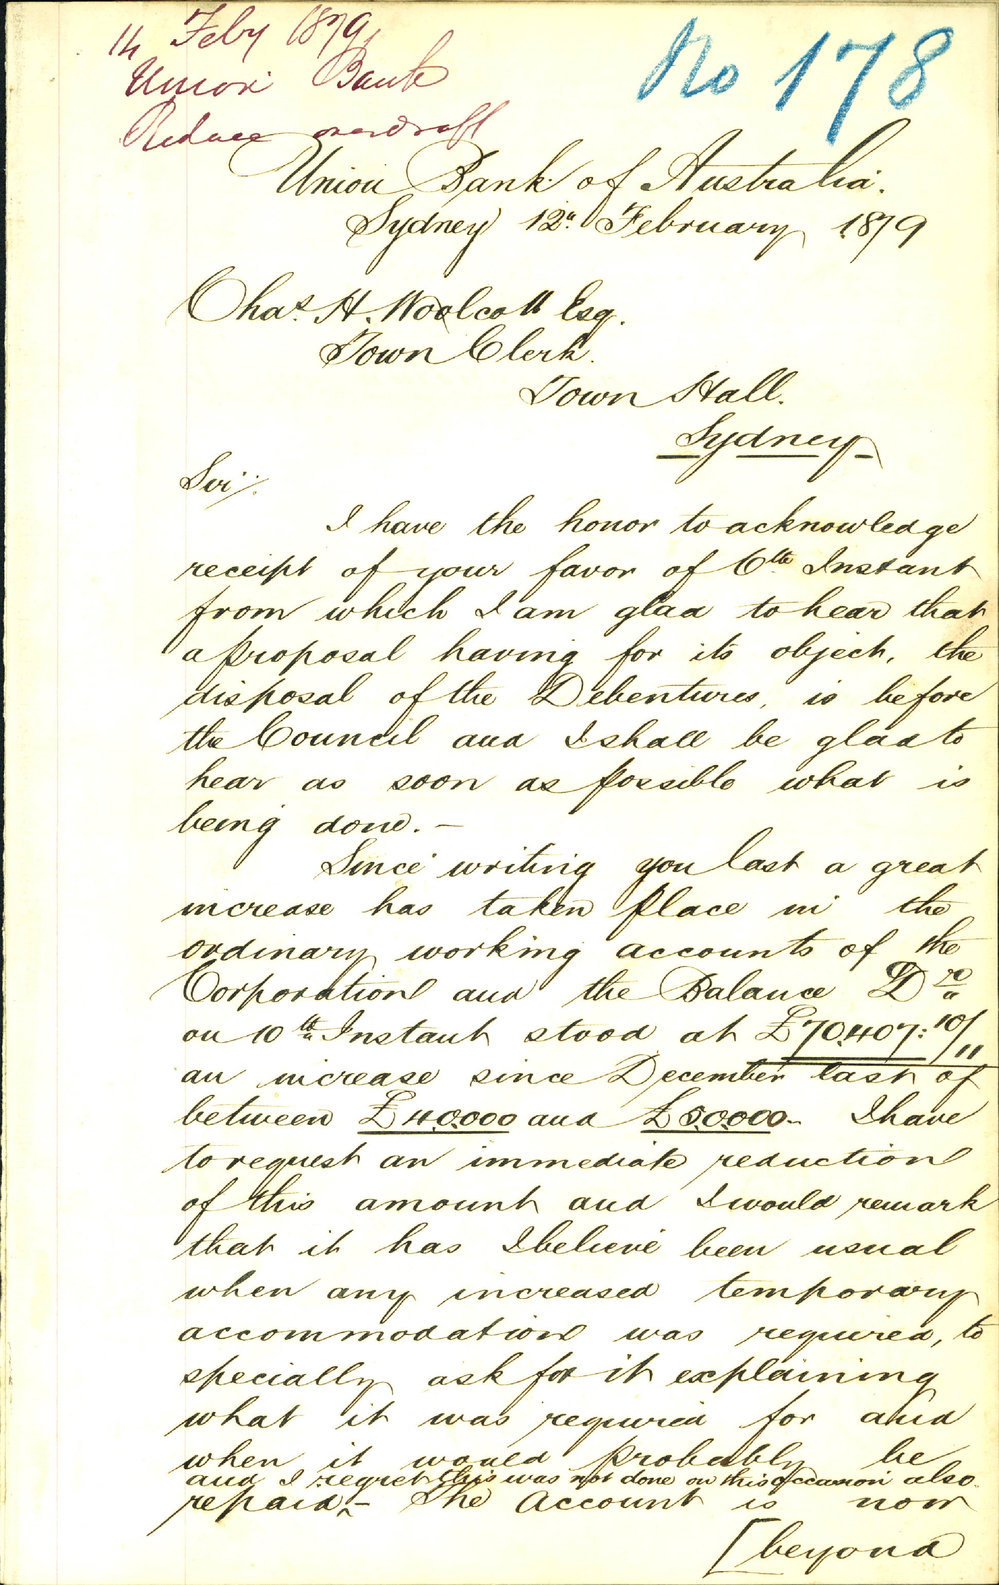 14 Feby 1879
Union Bank
Reduce overdraft
No 178
Union Bank of Australia.
Sydney 12th February 1879
Chas. H. Woolcott Esq.
Town Clerk.
Town Hall.
Sydney
Sir/.
I have the honor to acknowledge
receipt of your favor of 6th Instant
from which I am glad to hear that
a proposal having for its object, the
disposal of the Debentures, is before
the Council and I shall be glad to
hear as soon as possible what is
being done. –
Since writing you last a great
increase has taken place in the
ordinary working accounts of the
Corporation and the Balance Dr
on 10th Instant stood at £70,407:10/11
an increase since December last of
between £40,000 and £50,000 – I have
to request an immediate reduction
of this amount and I would remark
that it has I believe been usual
when any increased temporary
accommodation was required, to
specially ask for it explaining
what it was required for and
when it would probably be
and I regret this was not done on this occasion also
repaid – The Account is now
[beyond